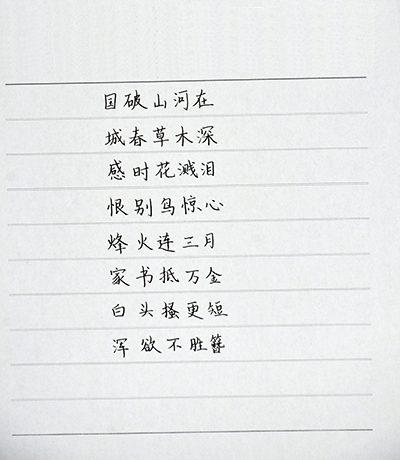 国破山河在
城春草木深
感时花溅泪
恨别鸟惊心
烽火连三月
家书抵万金
白头搔更短
浑欲不胜簪